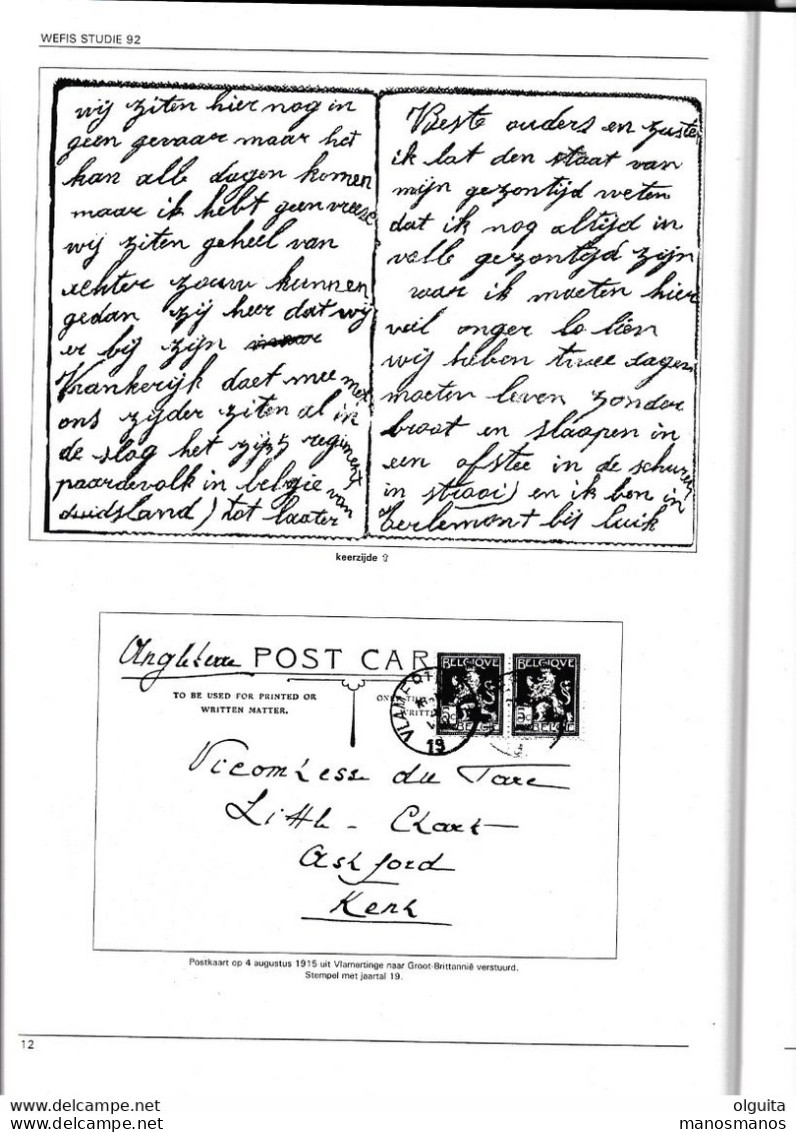 WEFIS STUDIE 92
wij ziten hier nog in
geen gevaar maar het
kan alle dagen komen
maar ik hebt geen vreese
wij ziten geheel van
achter zouw kunnen
gedan zij heer dat wij
er bij zijn
Vrankerijk doet mee met
ons zijder ziten al in
de slag het zijn regiment
paardevolk in belgie van
duidsland) tot laater
Beste ouders en zuster
ik lat den staat van
mijn gezontijd weten
dat ik nog altijd in
volle gezontijd zijn
waar ik moeten hier
veil onger lo lien
wij heben twee dagen
moeten leven zondor
broot en slaapen in
een afstee in de schuren
in straoi) en ik ben in
berlemont bij luik
keerzijde ⇧
Angleterre POST CAR
BELGIQUE BELGIQUE
TO BE USED FOR PRINTED OR
WRITTEN MATTER.
5c 5c
BELGIE BELGIE
VLAMERTI
19
Vicomtesse du Tare
Little - Chart
Ashford
Kent
Postkaart op 4 augustus 1915 uit Vlamertinge naar Groot-Brittannië verstuurd.
Stempel met jaartal 19.
12
olguita
manosmanos manosmanos